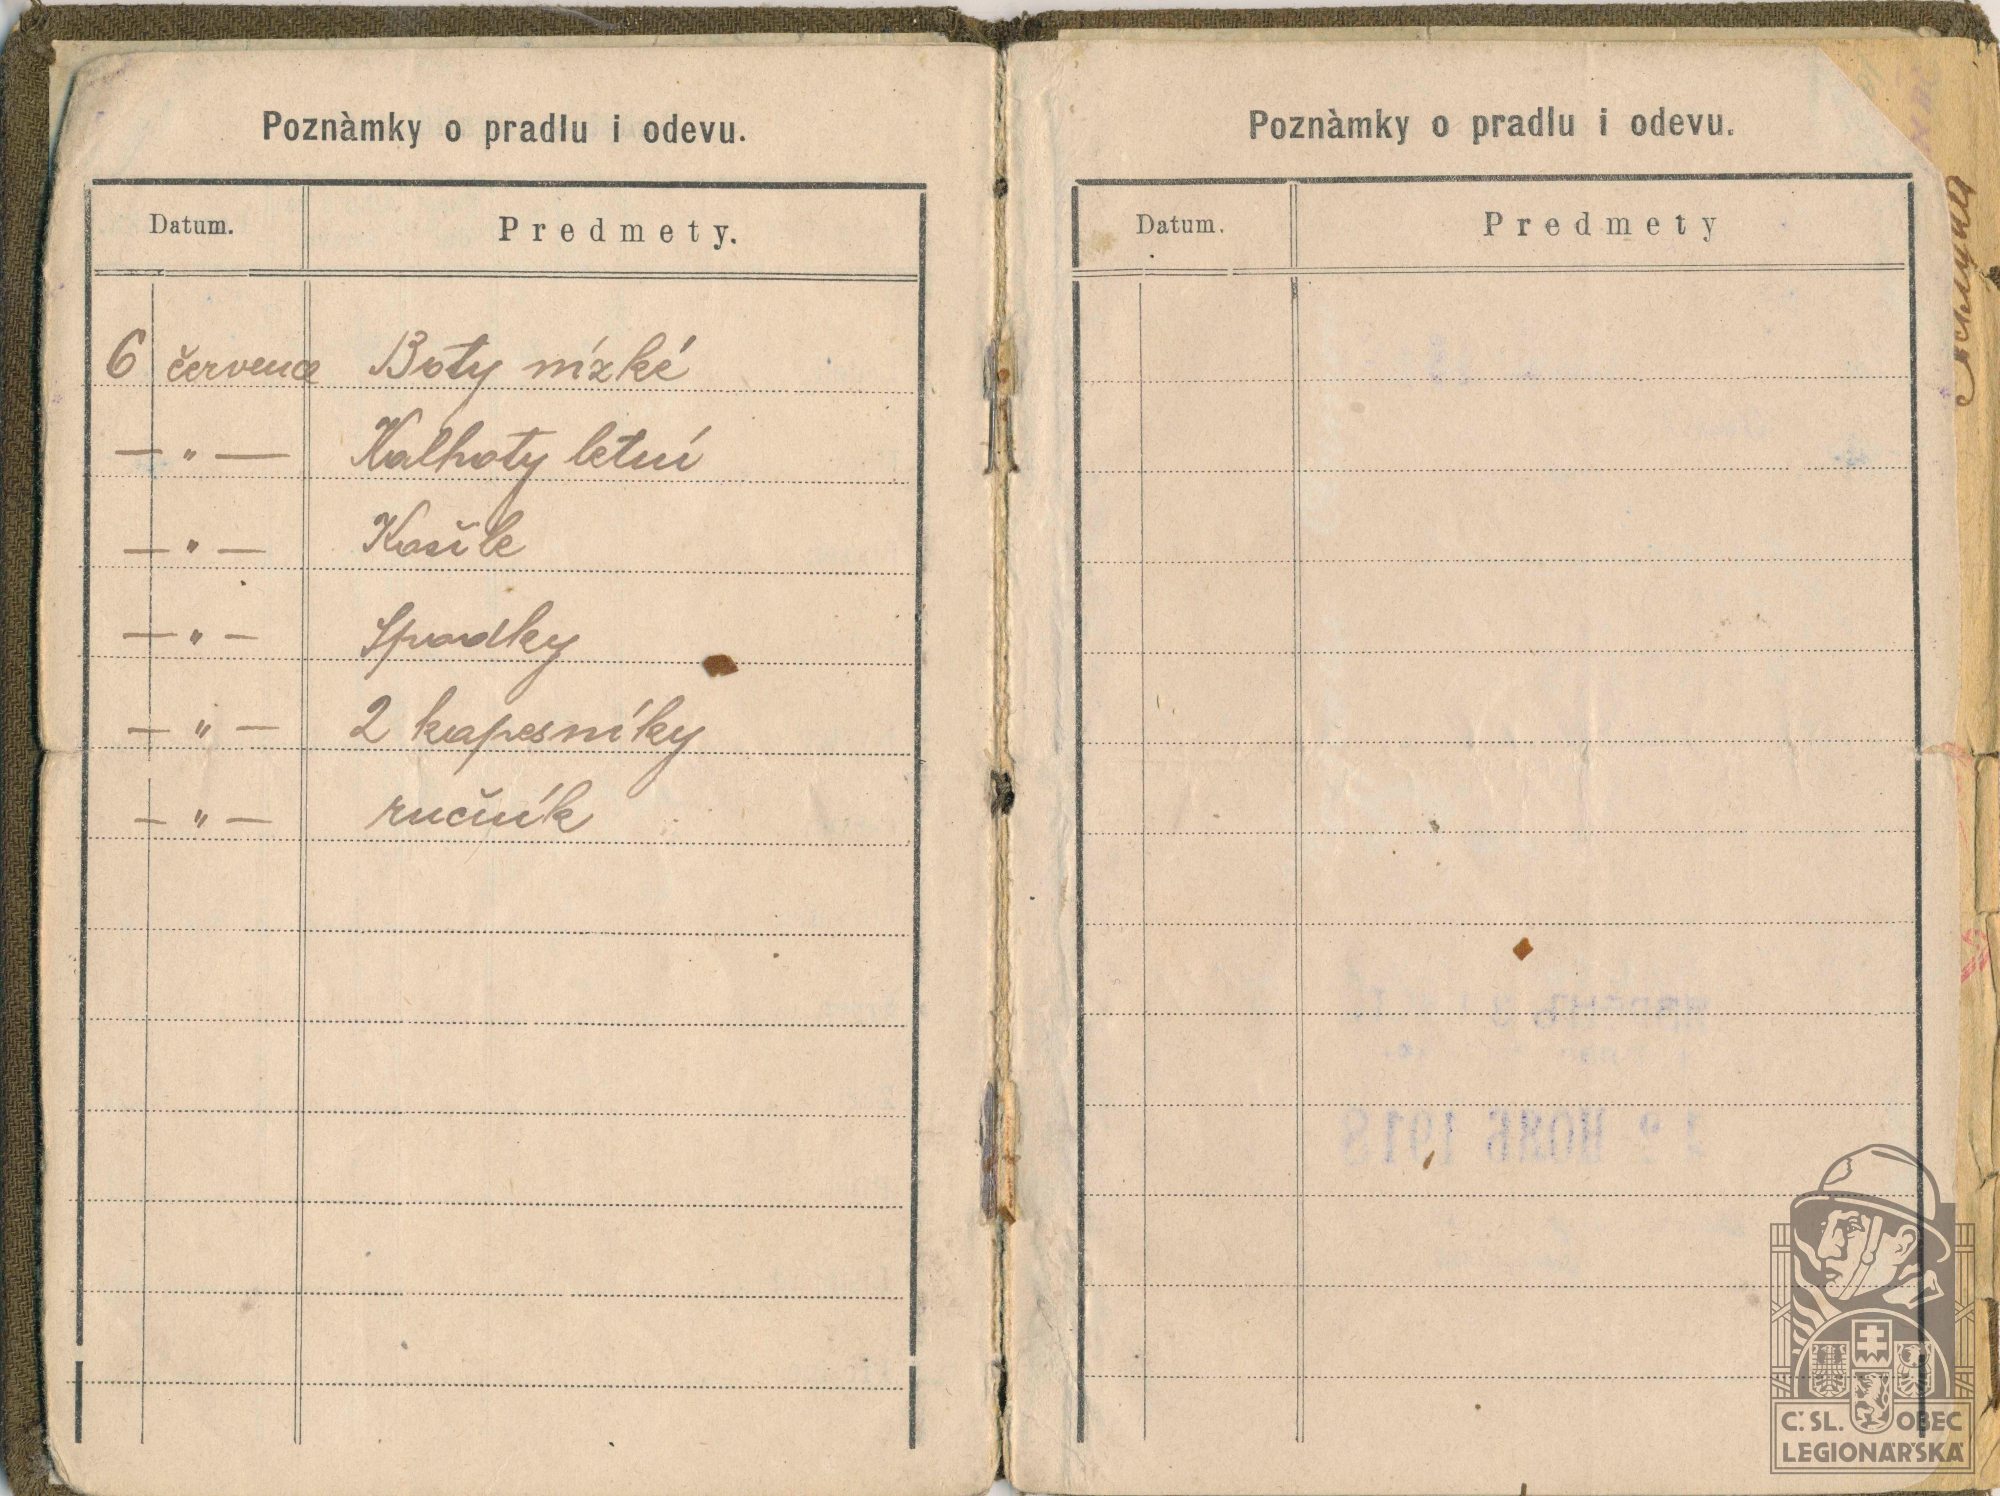 Poznàmky o pradlu i odevu.
Datum. Predmety.
6 července Boty nízké
— " — Kalhoty letní
— " — Košile
— " — Spodky
— " — 2 kapesníky
— " — ručník
Poznàmky o pradlu i odevu.
Datum. Predmety
НОЯБ 1918
Č.SL. OBEC
LEGIONÁŘSKÁ